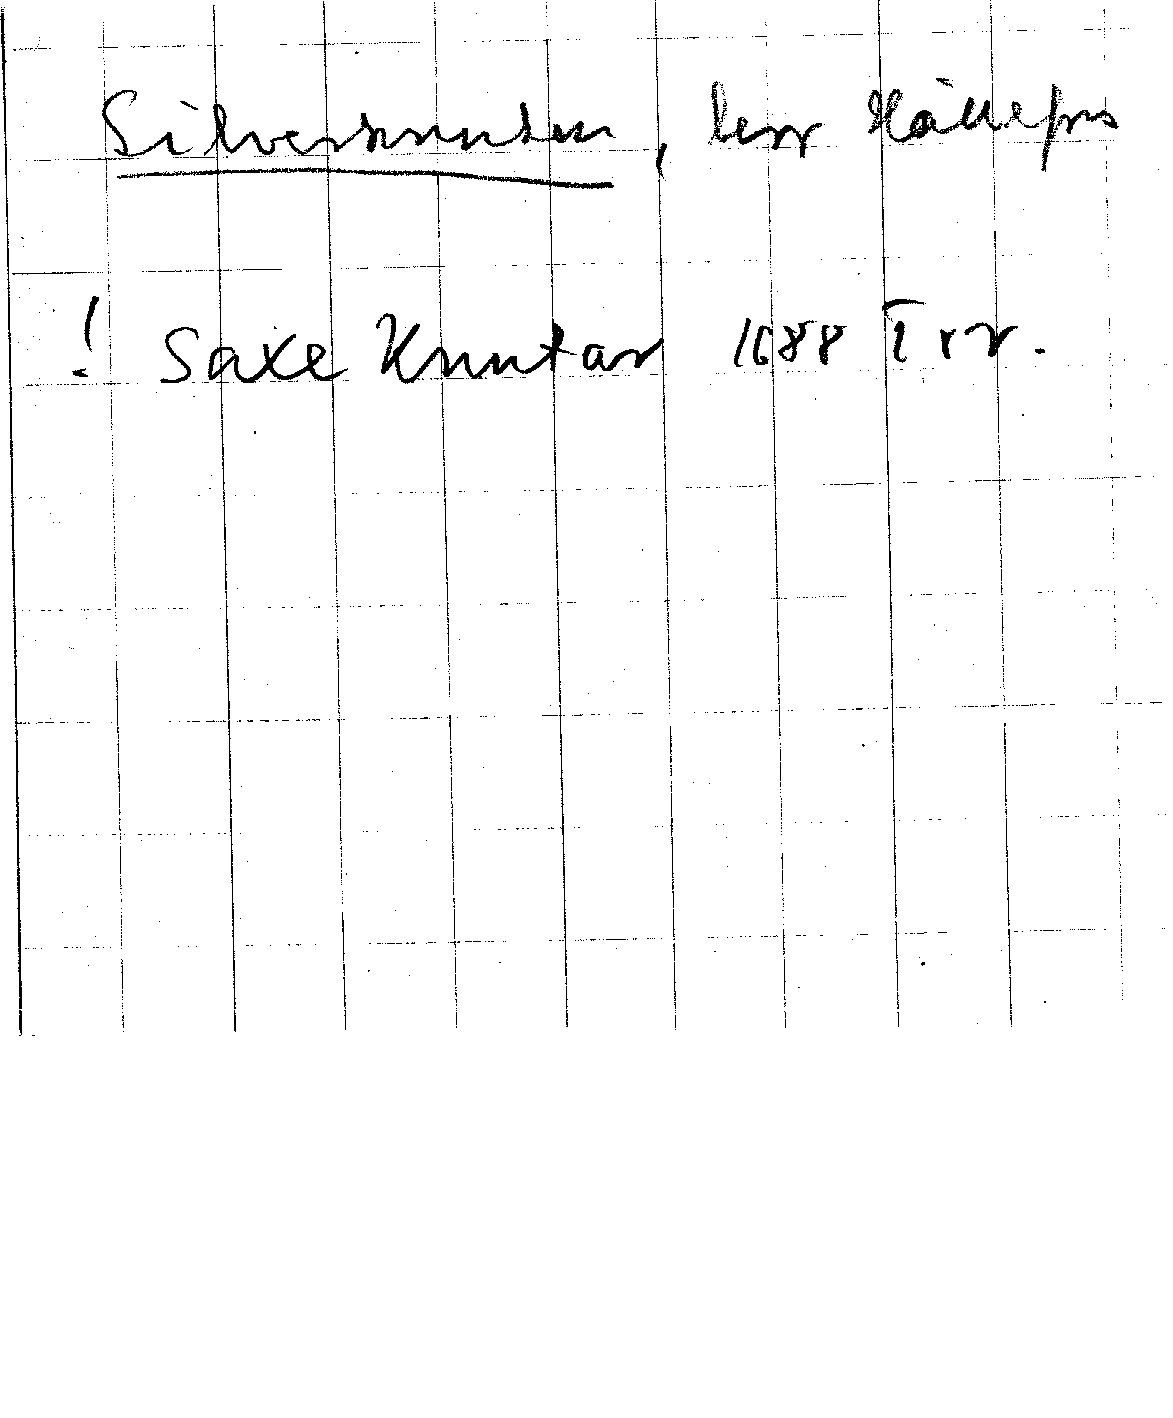 Silverknuten, terr Hällefors
! Saxe Knutar 1688 Trr.